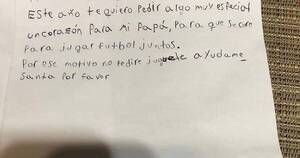 Este año te quiero Pedir algo muy especial
un corazón Para Mi Papá, Para que Se cure
Para jugar futbol juntos.
Por ese motivo no pedire juguete ayudame
Santa Por favor